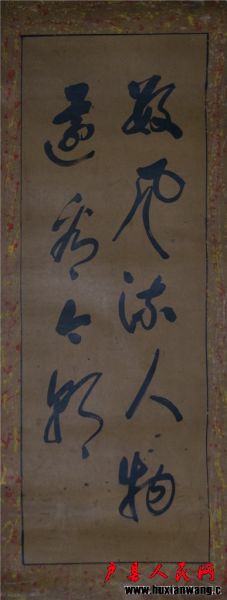 数风流人物
还看今朝
户县人民网
www.huxianwang.c